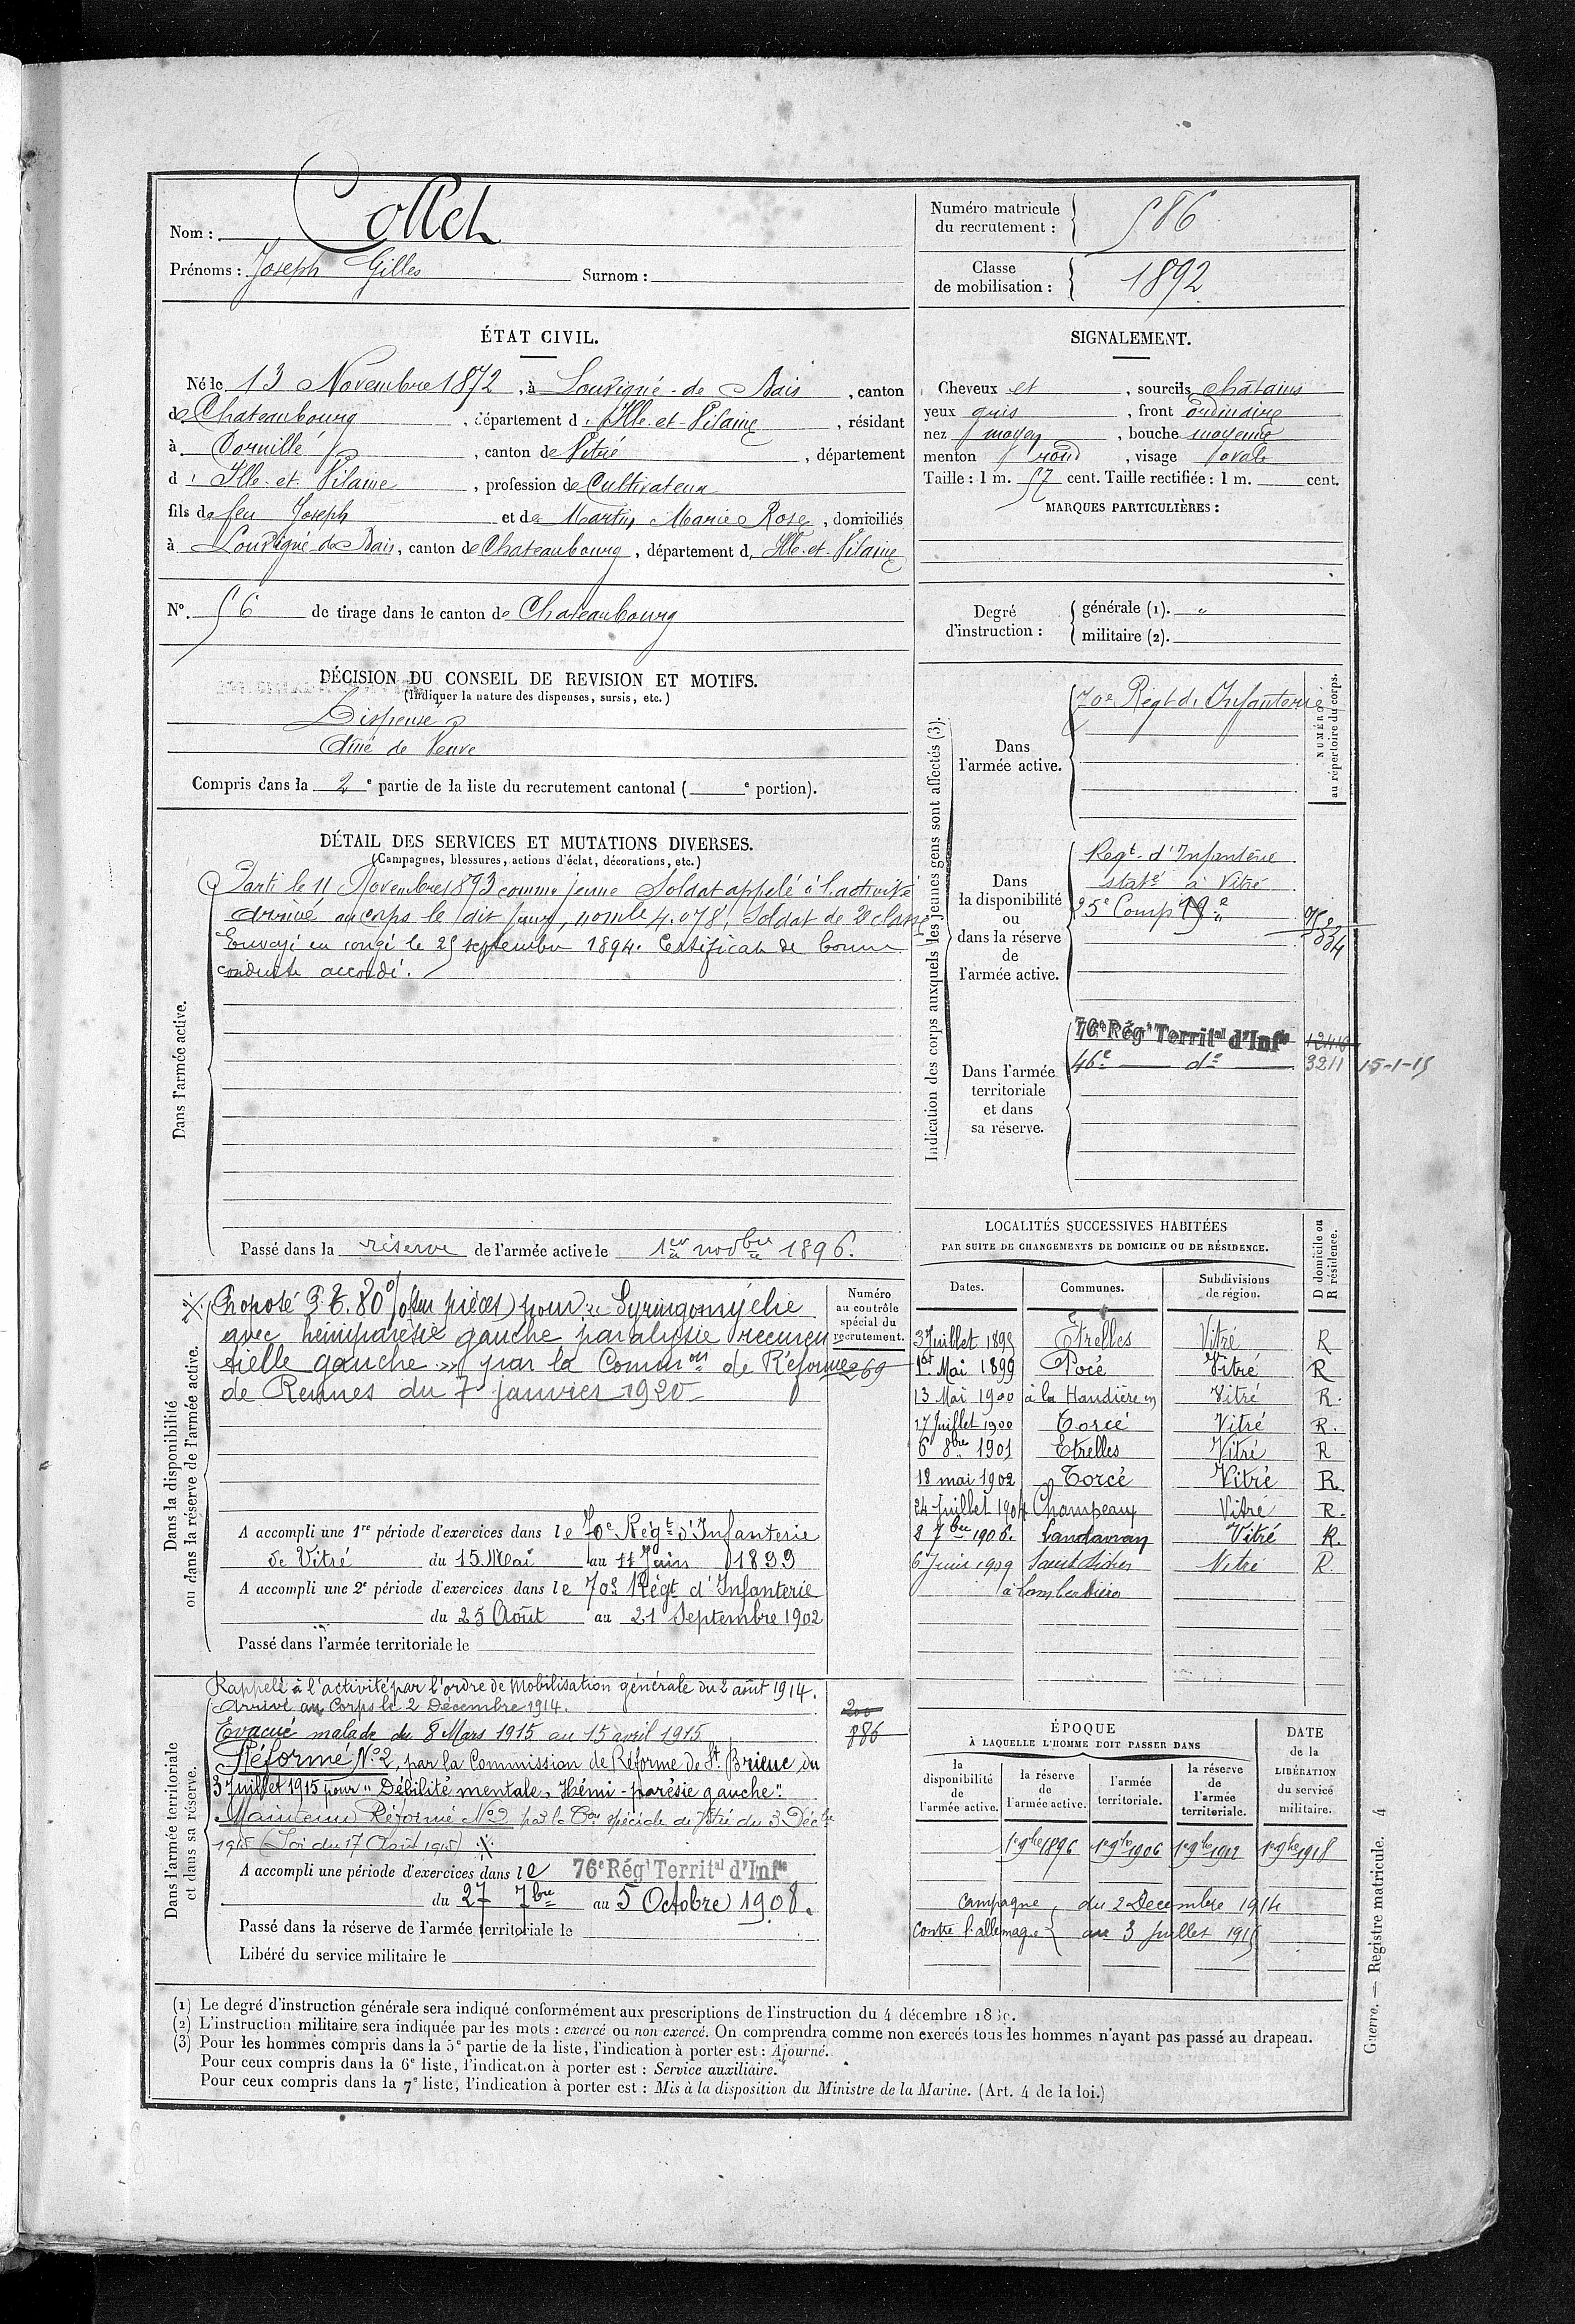 Nom : Collet
Prénoms : Joseph Gilles Surnom :
Numéro matricule du recrutement : 586
Classe de mobilisation : 1892
ÉTAT CIVIL.
Né le 13 Novembre 1872, à Louvigné-de-Bais, canton
de Chateaubourg, département d'Ille-et-Vilaine, résidant
à Cornillé, canton de Vitré, département
d'Ille-et-Vilaine, profession de Cultivateur
fils de feu Joseph et de Martin Marie Rose, domiciliés
à Louvigné-de-Bais, canton de Chateaubourg, département d'Ille-et-Vilaine
N°. 56 de tirage dans le canton de Chateaubourg
SIGNALEMENT.
Cheveux et, sourcils châtains
yeux gris, front ordinaire
nez moyen, bouche moyenne
menton rond, visage ovale
Taille : 1 m. 57 cent. Taille rectifiée : 1 m. cent.
MARQUES PARTICULIÈRES :
Degré d'instruction : générale (1). "
militaire (2).
DÉCISION DU CONSEIL DE REVISION ET MOTIFS.
(Indiquer la nature des dispenses, sursis, etc.)
Dispensé
Aîné de Veuve
Compris dans la 2e partie de la liste du recrutement cantonal ( e portion).
DÉTAIL DES SERVICES ET MUTATIONS DIVERSES.
(Campagnes, blessures, actions d'éclat, décorations, etc.)
Dans l'armée active.
Parti le 11 Novembre 1893 comme jeune Soldat appelé à l'activité
Arrivé au corps le dit jour, no mle 4.078, Soldat de 2e classe
Envoyé en congé le 25 septembre 1894. Certificat de bonne
conduite accordé.
Passé dans la réserve de l'armée active le 1er novbre 1896.
Indication des corps auxquels les jeunes gens sont affectés (3).
NUMÉRO au répertoire du corps.
Dans l'armée active.
70e Regt d'Infanterie
Dans la disponibilité ou dans la réserve de l'armée active.
Regt. d'Infanterie
staté à Vitré
25e Comp 19e
Dans l'armée territoriale et dans sa réserve.
76e Régt Territal d'Infie
46e de 3211 15-1-15
Dans la disponibilité ou dans la réserve de l'armée active.
Numéro au contrôle spécial du recrutement.
Proposé P.T. 80% (sur pièces) pour « Syringomyélie
avec hémiparésie gauche paralysie recuren
tielle gauche » par la Common de Réforme
de Rennes du 7 janvier 1920
269
A accompli une 1re période d'exercices dans le 70e Régt d'Infanterie
de Vitré du 15 Mai au 11 Juin 1899
A accompli une 2e période d'exercices dans le 70e Régt d'Infanterie
du 25 Août au 21 Septembre 1902
Passé dans l'armée territoriale le
LOCALITÉS SUCCESSIVES HABITÉES
PAR SUITE DE CHANGEMENTS DE DOMICILE OU DE RÉSIDENCE.
Dates. Communes. Subdivisions de région. D domicile ou R résidence.
3 Juillet 1895 Etrelles Vitré R
1er Mai 1899 Pocé Vitré R
13 Mai 1900 à la Vitré R.
17 Juillet 1900 Torcé Vitré R.
6 8bre 1901 Etrelles Vitré R
18 mai 1902 Torcé Vitré R.
24 Juillet 1904 Champeaux Vitré R.
8 7bre 1906. Landavran Vitré R.
6 Juin 1909 Saint Didier Vitré R.
Dans l'armée territoriale et dans sa réserve.
Rappelé à l'activité par l'ordre de Mobilisation générale du 2 août 1914.
Arrivé au Corps le 2 Décembre 1914.
Evacué malade du 8 Mars 1915 au 15 avril 1915
Réformé No 2, par la Commission de Réforme de St. Brieuc du
3 Juillet 1915 pour "Débilité mentale, Hémi-parésie gauche".
Maintenu Réformé No 2 par la Con spéciale de Vitré du 3 Décbre
1915 (Loi du 17 Août 1915)
200
886
A accompli une période d'exercices dans le 76e Régt Territal d'Infie
du 27 7bre au 5 Octobre 1908.
Passé dans la réserve de l'armée territoriale le
Libéré du service militaire le
ÉPOQUE
À LAQUELLE L'HOMME DOIT PASSER DANS
la disponibilité de l'armée active. la réserve de l'armée active. l'armée territoriale. la réserve de l'armée territoriale. DATE de la LIBÉRATION du service militaire.
1er 9bre 1896 1er 9bre 1906 1er 9bre 1912 1er 9bre 1918
Campagne du 2 Decembre 1914
Contre l'allemagne au 3 Juillet 1915
(1) Le degré d'instruction générale sera indiqué conformément aux prescriptions de l'instruction du 4 décembre
(2) L'instruction militaire sera indiquée par les mots : exercé ou non exercé. On comprendra comme non exercés tous les hommes n'ayant pas passé au drapeau.
(3) Pour les hommes compris dans la 5e partie de la liste, l'indication à porter est : Ajourné.
Pour ceux compris dans la 6e liste, l'indication à porter est : Service auxiliaire.
Pour ceux compris dans la 7e liste, l'indication à porter est : Mis à la disposition du Ministre de la Marine. (Art. 4 de la loi.)
Guerre. — Registre matricule. 4